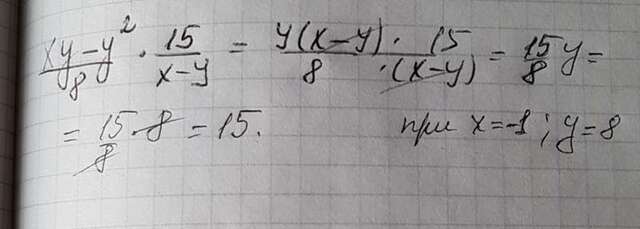 (xy-y²)/8 · 15/(x-y) = (y(x-y) · 15)/(8 · (x-y)) = 15/8 y =
= 15/8 · 8 = 15. при x=-1; y=8